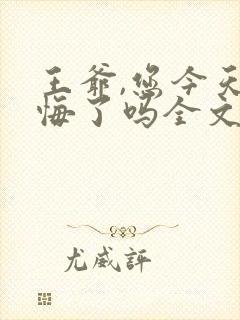 王爷,您今天
悔了吗全文
尤威评